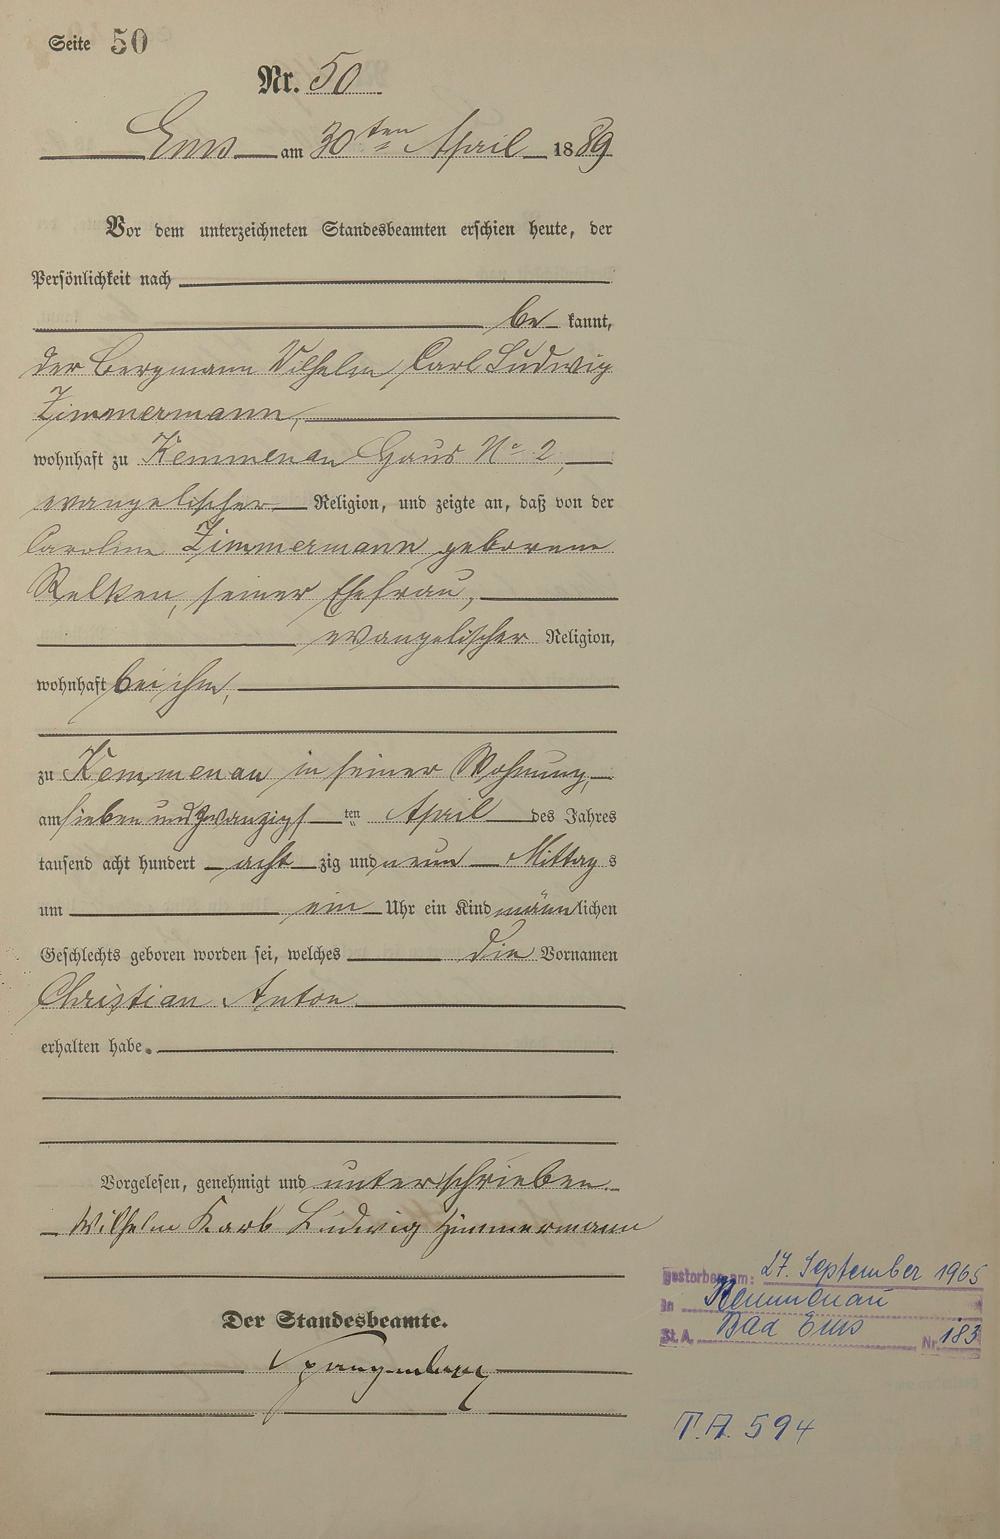 Seite 50
Nr. 50
Ems am 30ten April 1889
Vor dem unterzeichneten Standesbeamten erschien heute, der
Persönlichkeit nach
be kannt,
der Bergmann Wilhelm Carl Ludwig
Zimmermann,
wohnhaft zu Kemmenau Haus No 2,
evangelischer Religion, und zeigte an, daß von der
Caroline Zimmermann geborene
seiner Ehefrau,
evangelischer Religion,
wohnhaft bei ihm,
zu Kemmenau in seiner Wohnung,
am sieben und zwanzigsten April des Jahres
tausend acht hundert acht zig und neun Mittags
um ein Uhr ein Kind männlichen
Geschlechts geboren worden sei, welches die Vornamen
Christian Anton
erhalten habe.
Vorgelesen, genehmigt und unterschrieben.
Wilhelm Karl Ludwig Zimmermann
Der Standesbeamte.
Spangenberg
gestorben am: 27. September 1965
in Kemmenau
St. A. Bad Ems Nr. 183
T.A. 594